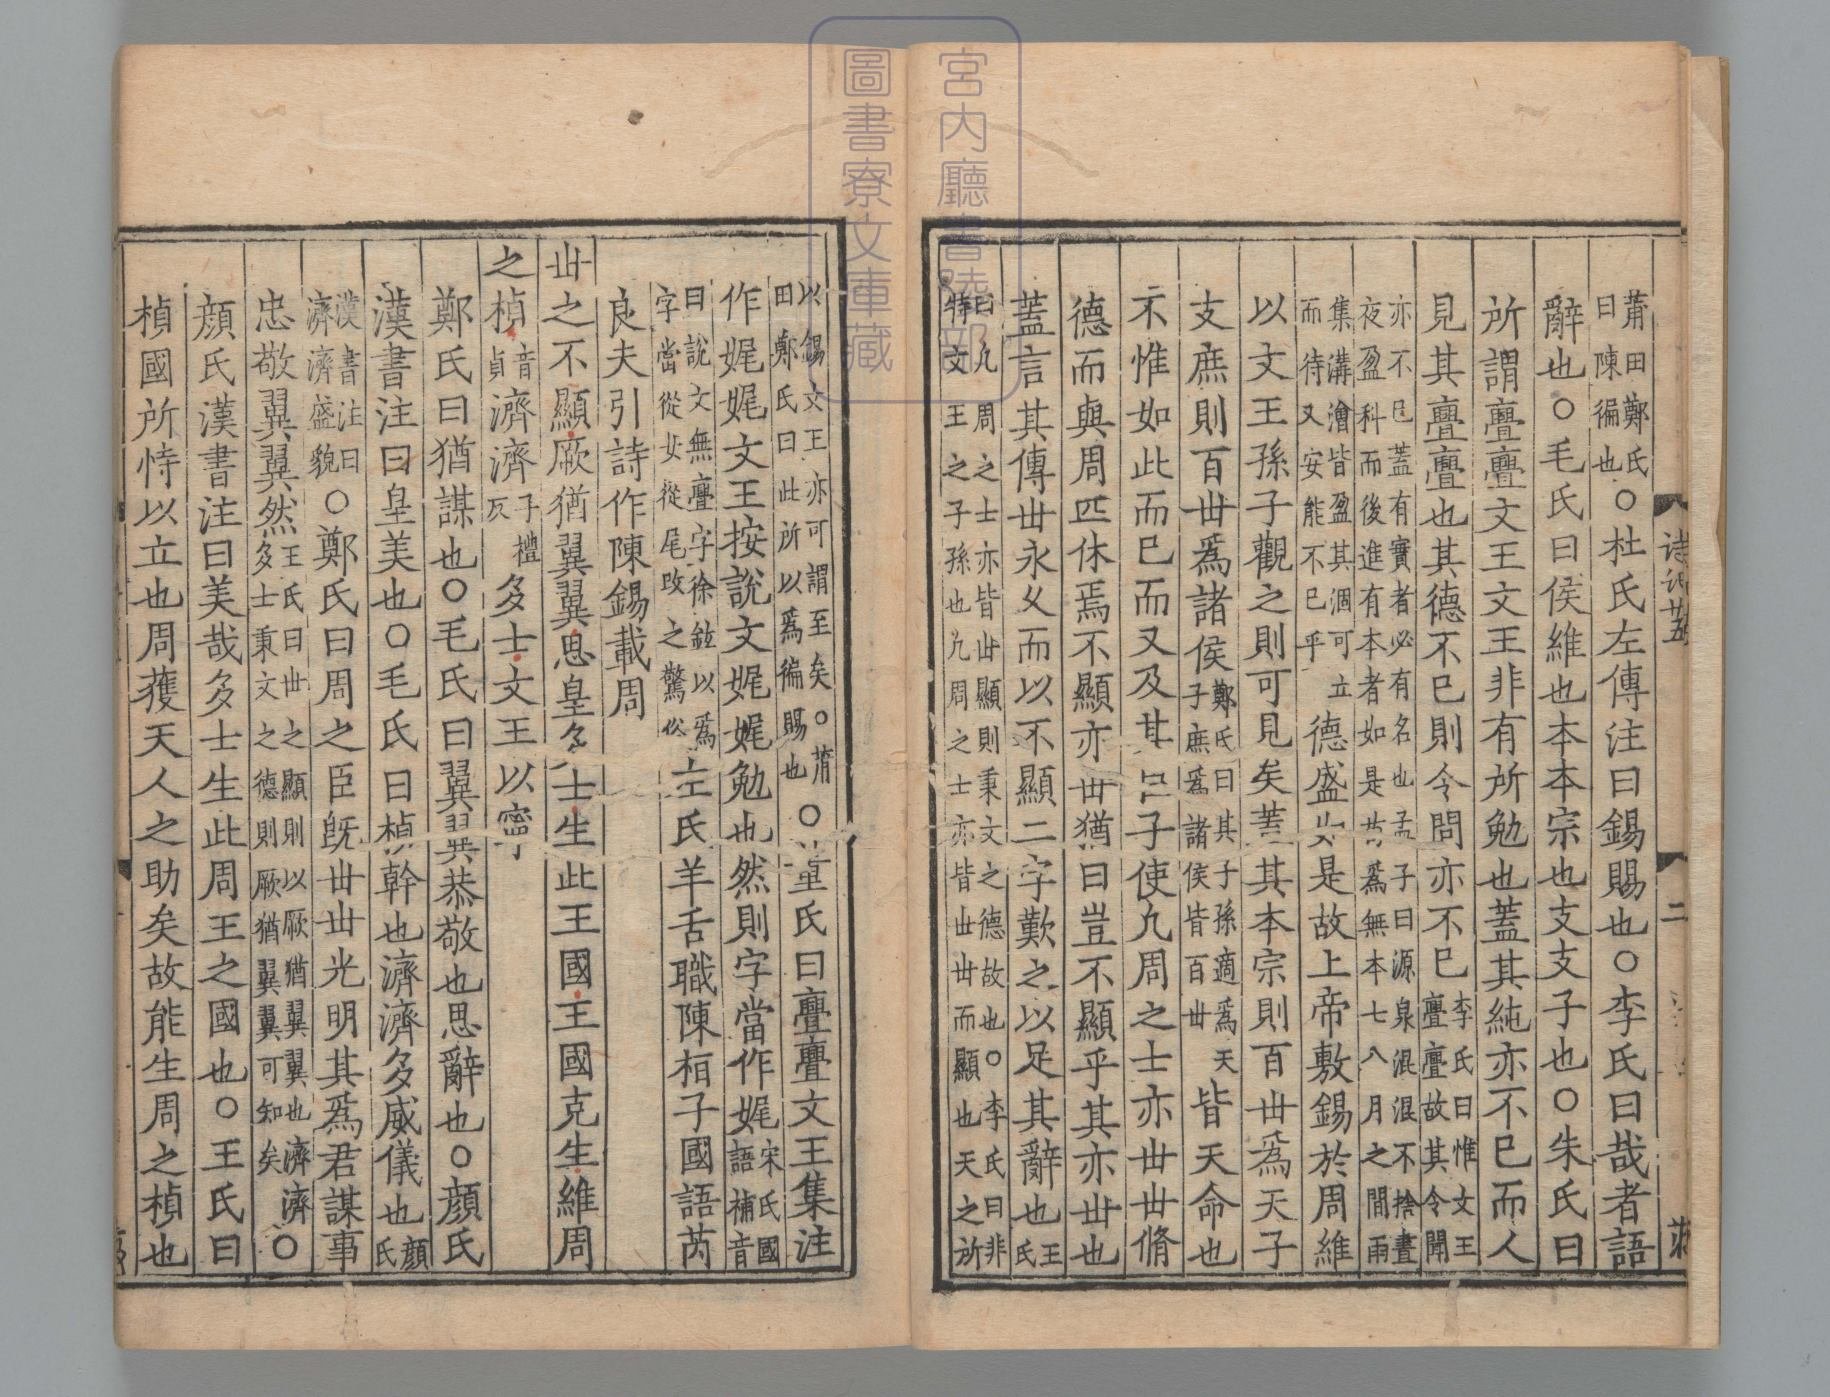 莆田鄭氏
曰陳徧也
○杜氏左傳注曰錫賜也○李氏曰哉者語
辭也○毛氏曰侯維也本本宗也支支子也○朱氏曰
所謂亹亹文王文王非有所勉也蓋其純亦不已而人
見其亹亹也其德不已則令問亦不已
李氏曰惟文王
亹亹故其令聞
亦不已蓋有實者必有名也孟子曰源泉混混不捨晝
夜盈科而後進有本者如是苟爲無本七八月之間雨
集溝澮皆盈其涸可立
而待又安能不已乎
德盛如是故上帝敷錫於周維
以文王孫子觀之則可見矣蓋其本宗則百丗爲天子
支庶則百丗爲諸侯
鄭氏曰其子孫適爲天
子庶爲諸侯皆百丗
皆天命也
不惟如此而已而又及其臣子使凡周之士亦丗丗脩
德而與周匹休焉不顯亦丗猶曰豈不顯乎其亦丗也
蓋言其傳丗永久而以不顯二字歎之以足其辭也
王
氏
曰凡周之士亦皆丗顯則秉文之德故也○李氏曰非
特文王之子孫也凡周之士亦皆丗丗而顯也天之所
以錫文王亦可謂至矣○莆
田鄭氏曰此所以爲徧賜也
○董氏曰亹亹文王集注
作娓娓文王按說文娓娓勉也然則字當作娓
宋氏國
語補音
曰說文無亹字徐鉉以爲
字當從女從尾改之驚俗
左氏羊舌職陳桓子國語芮
良夫引詩作陳錫載周
丗之不顯厥猶翼翼思皇多士生此王國王國克生維周
之楨
音
貞
濟濟
子禮
反
多士文王以寧
鄭氏曰猶謀也○毛氏曰翼翼恭敬也思辭也○顔氏
漢書注曰皇美也○毛氏曰楨幹也濟濟多威儀也
顔
氏
漢書注曰
濟濟盛貌
○鄭氏曰周之臣旣丗丗光明其爲君謀事
忠敬翼翼然
王氏曰丗之顯則以厥猶翼翼也濟濟
多士秉文之德則厥猶翼翼可知矣
○
顔氏漢書注曰美哉多士生此周王之國也○王氏曰
楨國所恃以立也周獲天人之助矣故能生周之楨也
詩記廿五
二
宮内廳書陵部
圖書寮文庫藏